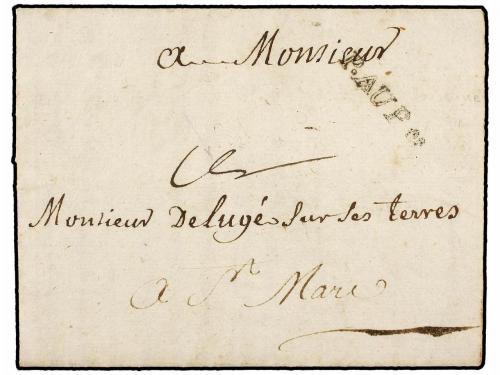 a Monsieur
P. AU Pce
Monsieur Delugé sur ses terres
a St Marc